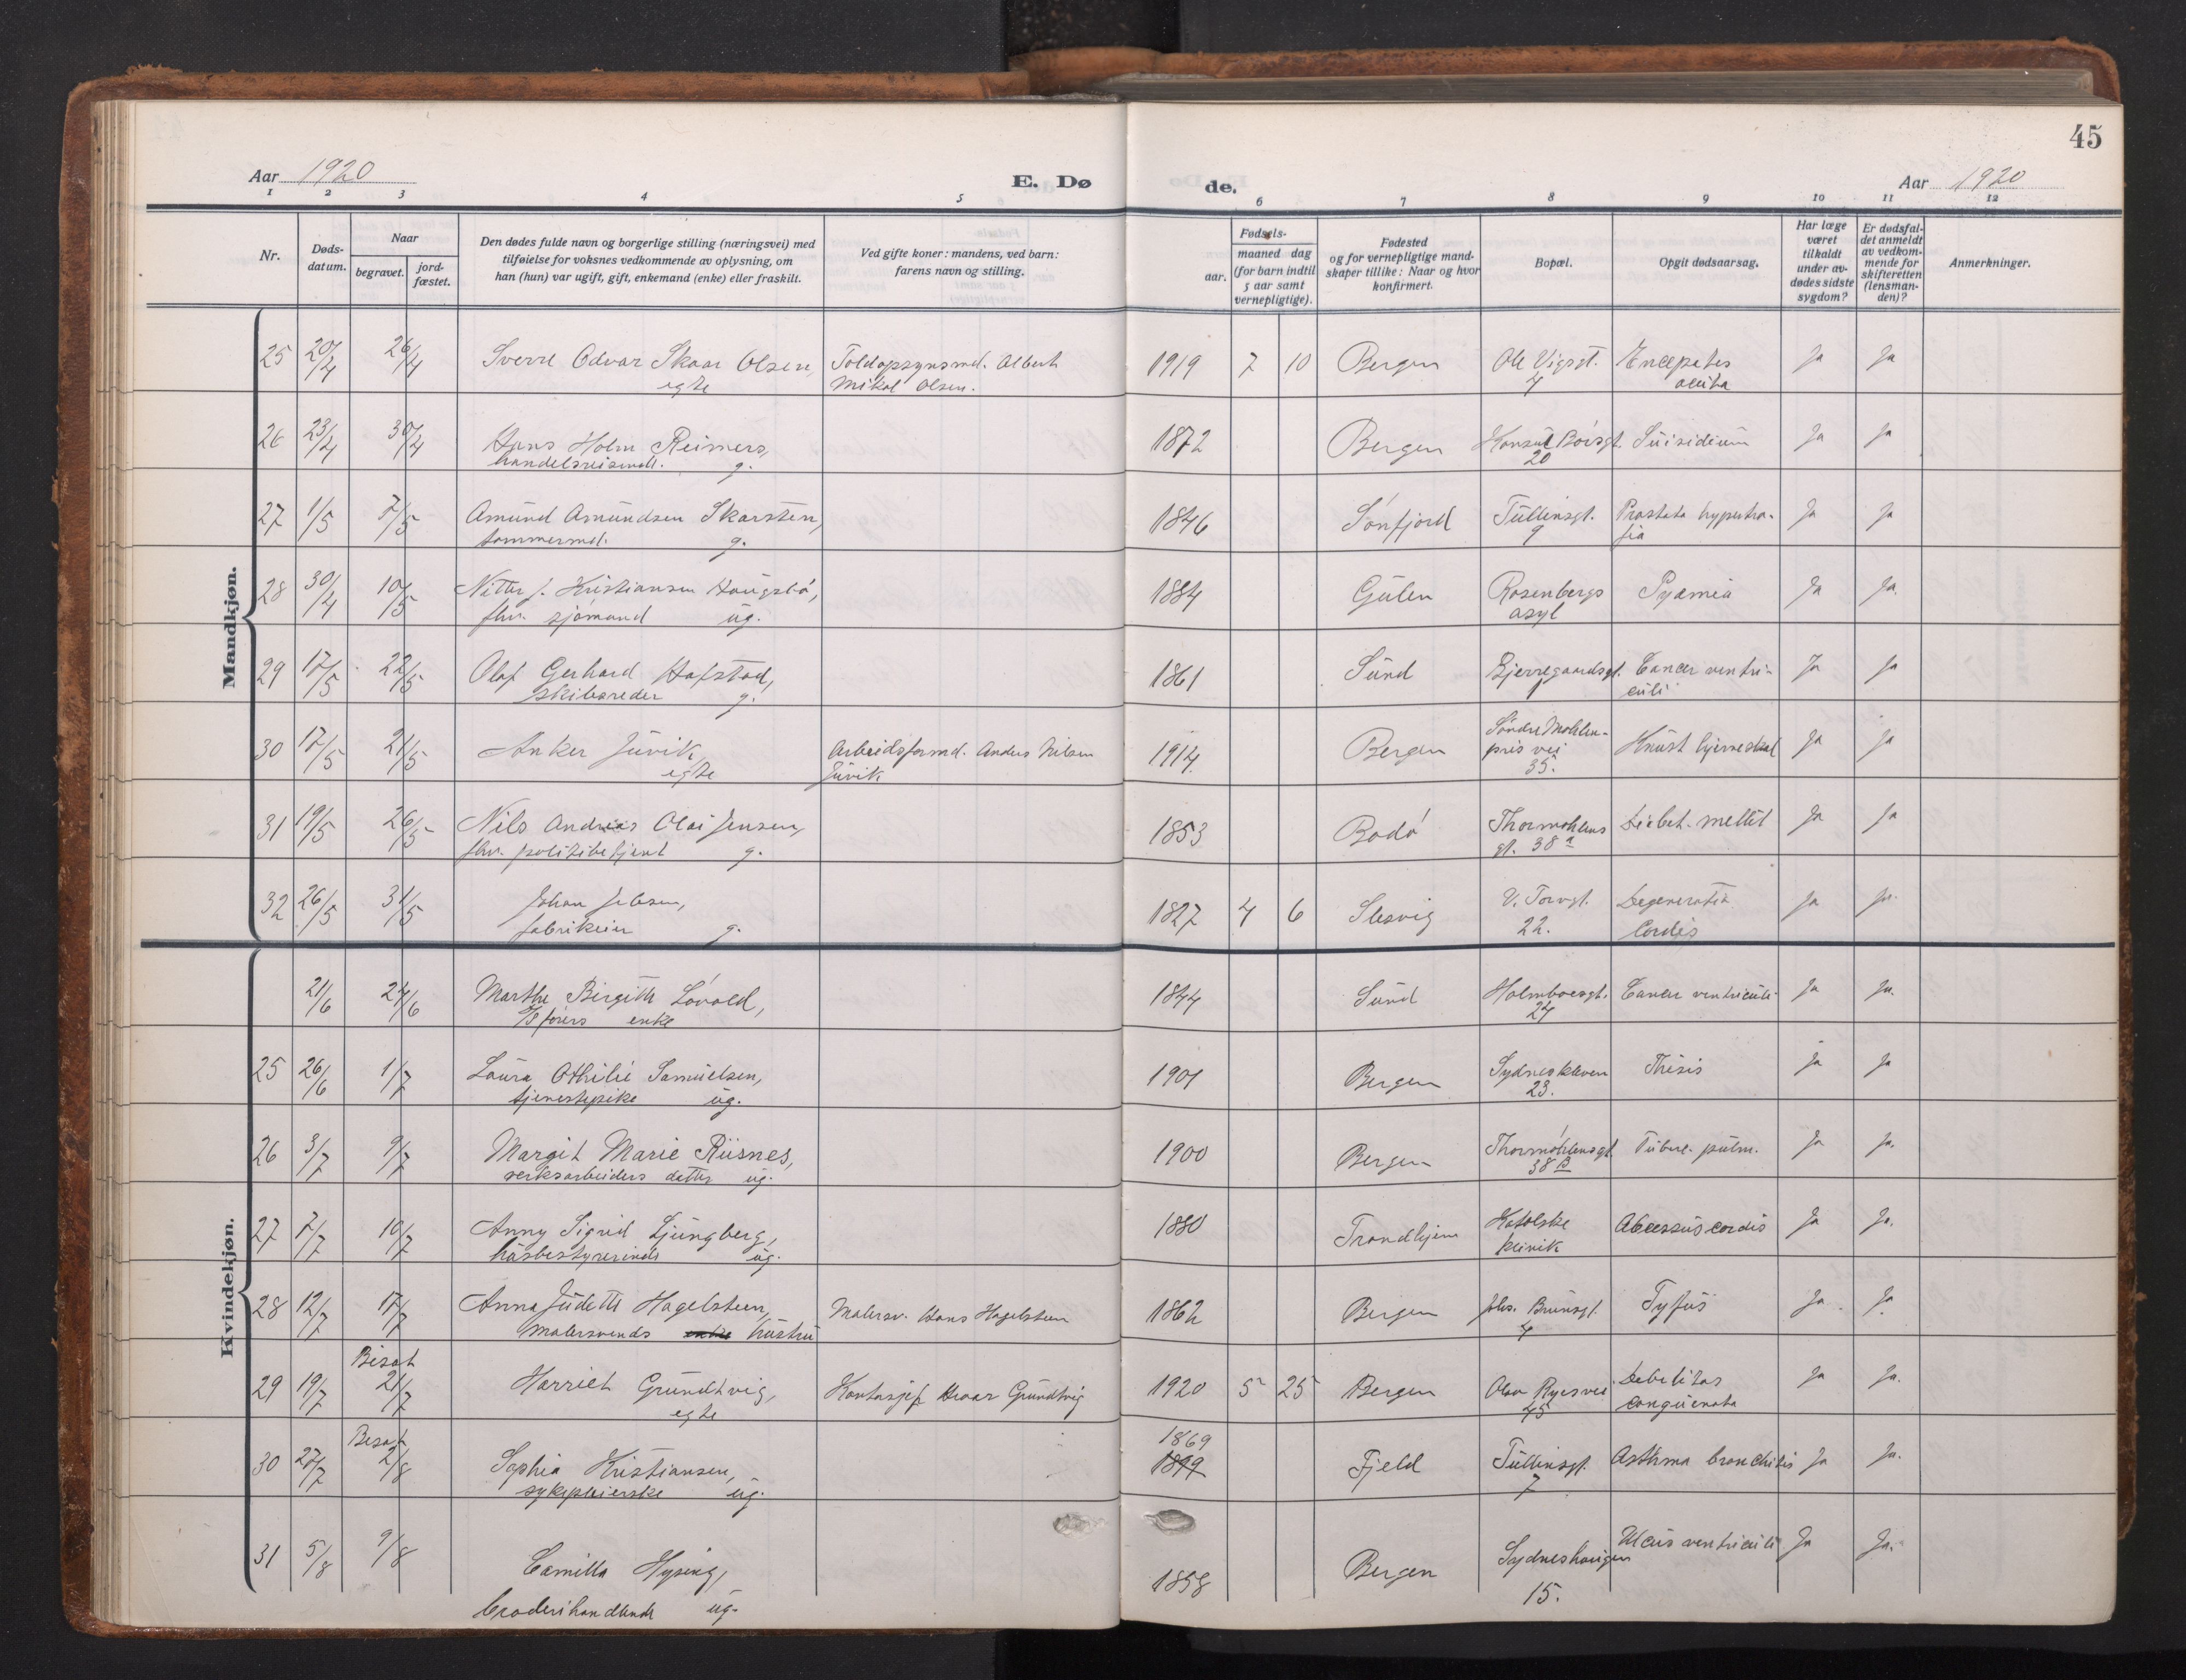 45
Aar 1920
E. Dø
de.
Aar 1920
1 2 3 4 5 6 7 8 9 10 11 12
Nr.
Døds-
datum.
Naar
begravet.
jord-
fæstet.
Den dødes fulde navn og borgerlige stilling (næringsvei) med
tilføielse for voksnes vedkommende av oplysning, om
han (hun) var ugift, gift, enkemand (enke) eller fraskilt.
Ved gifte koner: mandens, ved barn:
farens navn og stilling.
Fødsels-
aar.
maaned dag
(for barn indtil
5 aar samt
vernepligtige).
Fødested
og for vernepligtige mand-
skaper tillike: Naar og hvor
konfirmert.
Bopæl.
Opgit dødsaarsag.
Har læge
været
tilkaldt
under av-
dødes sidste
sygdom?
Er dødsfal-
det anmeldt
av vedkom-
mende for
skifteretten
(lensman-
den)?
Anmerkninger.
Mandkjøn.
25 20/4 26/4 Sverre Odvar Skaar Olsen, Toldopsynsmd. Albert 1919 7 10 Bergen Ole Vigsgt. Ja Ja
egte Mikal Olsen. 4 acuta
26 23/4 30/4 Hans Holm Reimers, 1872 Bergen Konsul Børsgt. Suisidium Ja Ja
handelsreisende. g. 20
27 1/5 7/5 Amund Amundsen Skarsten, 1846 Sønfjord Tullinsgt. Prostata hypertro- Ja Ja
tømmermd. g. 9 fia
28 30/4 10/5 Kristiansen Haugsbø, 1884 Gulen Rosenbergs Pyæmia Ja Ja.
fhv. sjømand ug. asyl
29 17/5 22/5 Olaf Gerhard Hafstad, 1861 Sund Bjerregaardsgt. Cancer ventri- Ja Ja
skibsreder g. 1 culi
30 17/5 21/5 Anker Juvik, Arbeidsformd. Anders Nilsen 1914. Bergen Søndre Møhlen- Knust hjerneskal Ja Ja
egte Juvik pris vei
35.
31 19/5 26/5 Nils Andreas Olai Jensen, 1853 Bodø Thormøhlens Diabet. mellit Ja Ja
fhv. politibetjent g. gt. 38 a
32 26/5 31/5 Johan Jebsen, 1827 4 6 Slesvig V. Torvgt. Degeneratio Ja Ja.
fabrikeier g. 22. Cordis
Kvindekjøn.
21/6 24/6 Marthe Birgitte Løvold, 1844 Sund Holmboesgt. Cancer ventriculi Ja Ja.
enke 24
25 26/6 1/7 Laura Othilie Samuelsen, 1901 Bergen Sydneskleven Thisis Ja Ja
tjenestepike ug. 23.
26 3/7 9/7 Margit Marie Riisnes, 1900 Bergen Thormøhlensgt. Tuberc. pulm. Ja Ja.
verksarbeiders datter ug. 38 B
27 7/7 10/7 Anny Sigrid Ljungberg, 1880 Trondhjem Katolske Abcessus cordis Ja Ja.
husbestyrerinde ug. klinik
28 12/7 17/7 Anna Judette Hagelsteen, Malersv. Hans Hagelsteen 1862 Bergen Joh. Brunsgt. Tyfus Ja. Ja
malersvends enke hustru 4
Bisat
29 19/7 21/7 Harriet Grundtvig, Kontorsjef Grundtvig 1920 5 25 Bergen Olav Ryesvei Debelitas Ja Ja.
egte 45 congienata
Bisat 1869
30 27/7 2/8 Sophia Kristiansen, 1899 Fjeld Tullinsgt. Asthma bronchitis Ja Ja.
sykepleierske ug. 7
31 5/8 9/8 Camilla Hysing, 1858 Bergen Sydneshaugen Ulcus ventriculi Ja Ja.
broderihandlende ug. 15.